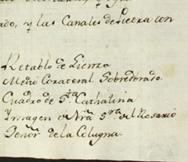 ado, y las Canales de Letra con
Retablo de Lienzo
Medio Corateral Sobredorado
Cuadro de Sta Catharina
Imagen de Nra Sra del Rosario
Señor de la Colugna